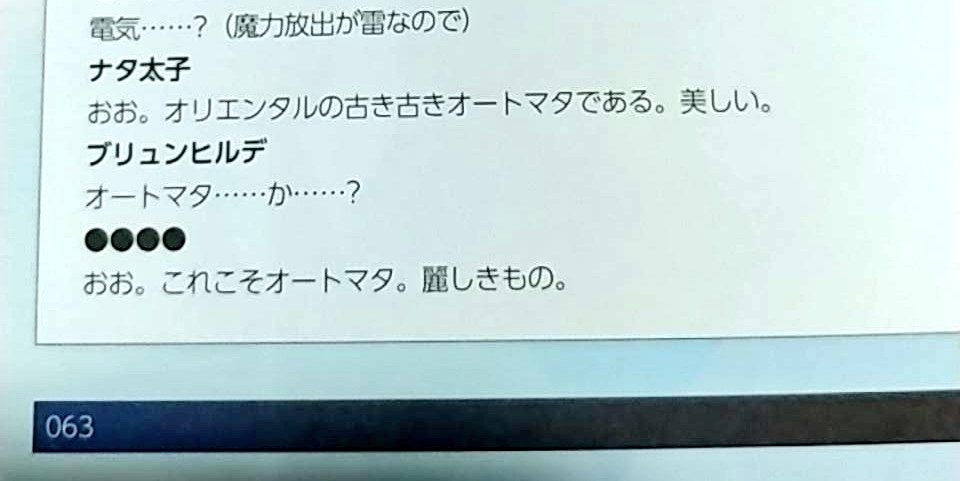 電気……?（魔力放出が雷なので）
ナタ太子
おお。オリエンタルの古き古きオートマタである。美しい。
ブリュンヒルデ
オートマタ……か……?
●●●●
おお。これこそオートマタ。麗しきもの。
063